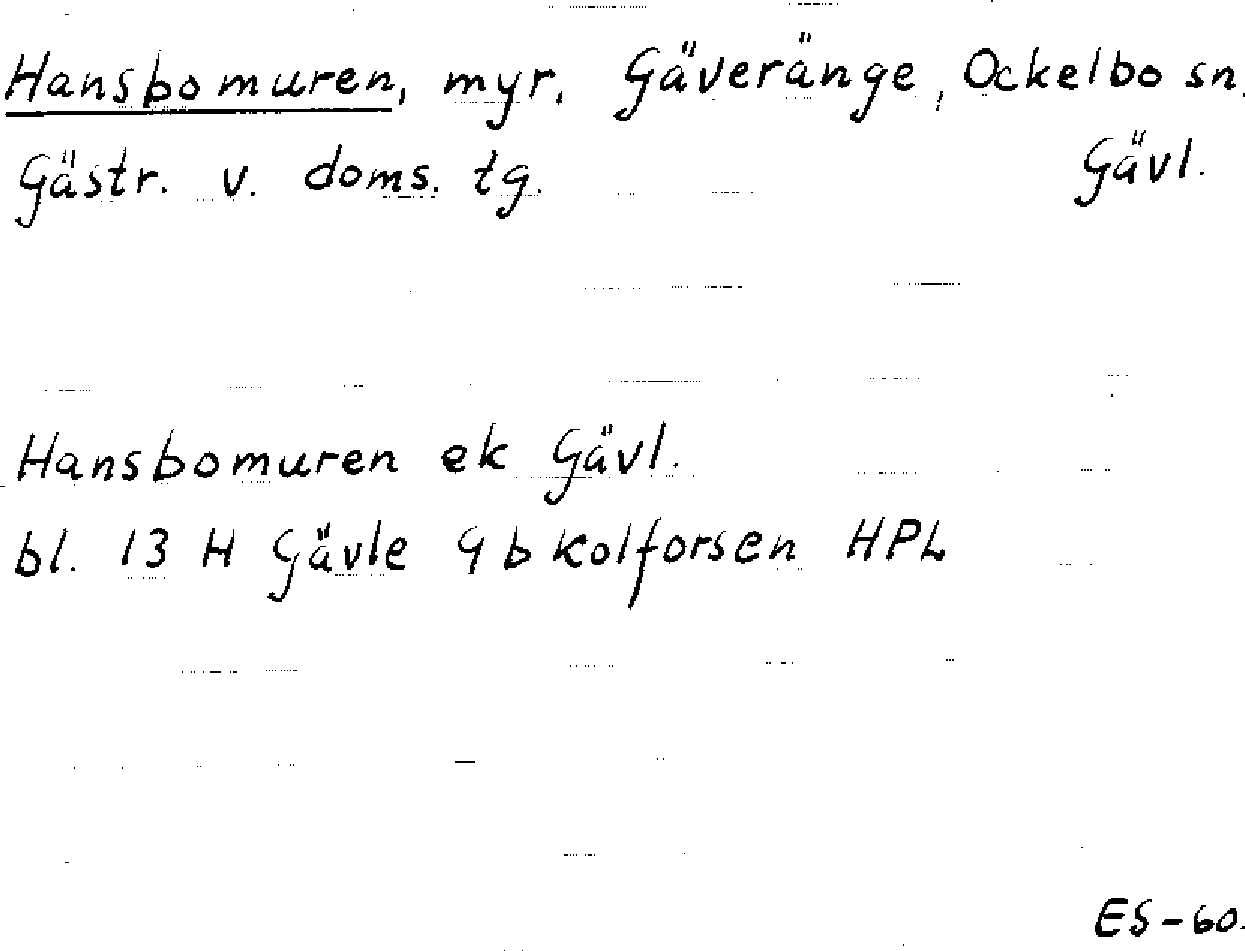 Hansbomuren, myr. Gäveränge, Ockelbo sn.
Gästr. v. doms. tg. Gävl.
Hansbomuren ek Gävl.
bl. 13 H Gävle 9 b Kolforsen HPL
ES-60.